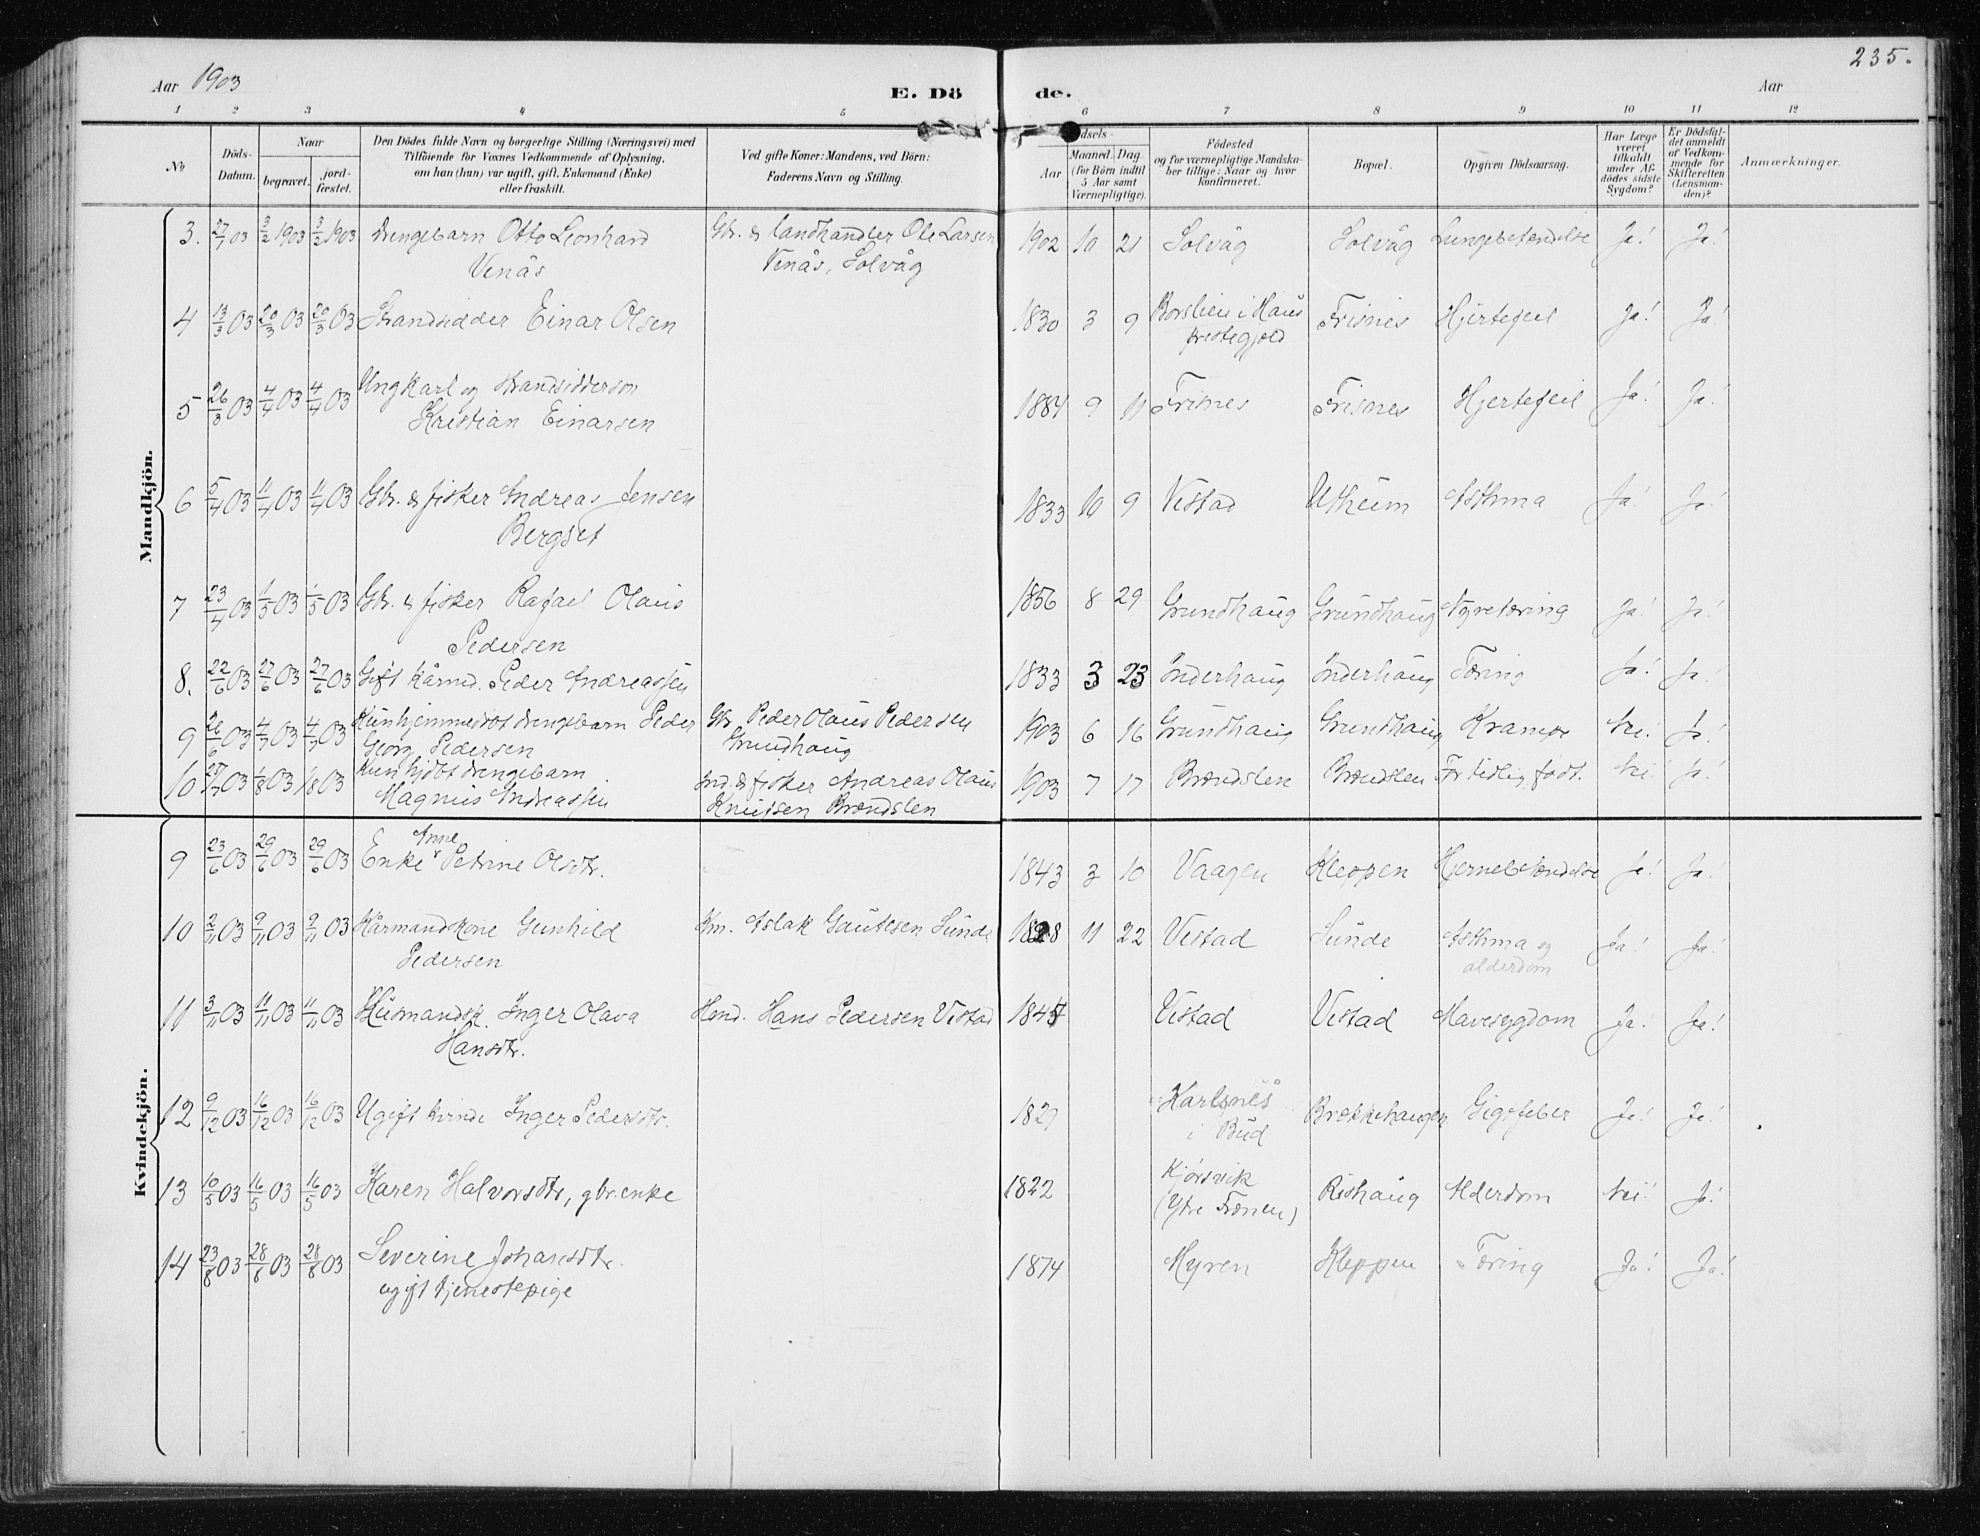 235.
Aar 1903
E. Dö de.
Aar
1 2 3 4 5 6 7 8 9 10 11 12
No
Döds-Datum.
Naar
begravet.
jord-fæstet.
Den Dödes fulde Navn og borgerlige Stilling (Næringsvei) med
Tilföiende for Voxnes Vedkommende af Oplysning,
om han (hun) var ugift, gift, Enkemand (Enke)
eller fraskilt.
Ved gifte Koner: Mandens, ved Börn:
Faderens Navn og Stilling.
dsels-
Aar
Maaned. Dag
(for Börn indtil
5 Aar samt
Værnepligtige).
Födested
og for værnepligtige Mandska-
ber tillige: Naar og hvor
konfirmeret.
Bopæl.
Opgiven Dödsaarsag.
Har Læge
været
tilkaldt
under Af-
dödes sidste
Sygdom?
Er Dödsfal-
det anmeldt
af Vedkom-
mende for
Skifteretten
(Lensman-
den)?
Anmærkninger.
Mandkjön.
3. 27/1 03 3/2 1903 3/2 1903 Drengebarn Otto Leonhard Gbr. & landhandler Ole Larsen 1902 10 21 Solvåg Solvåg Lungebetændelse Ja! Ja!
Venås Venås, Solvåg
4 13/3 03 20/3 03 20/3 03 Strandsidder Einar Olsen 1830 3 9 Borslien i Haus Frisnes Hjertefeil Ja! Ja!
prestegjeld
5 26/3 03 4/4 03 4/4 03 Ungkarl og strandsidderson
Kristian Einarsen 1884 9 11 Frisnes Frisnes Hjertefeil Ja! Ja!
6 5/4 03 11/4 03 11/4 03 Gbr. & fisker Andreas Jensen 1833 10 9 Vestad Utheim Asthma Ja! Ja!
Bergset
7 23/4 03 1/5 03 1/5 03 Gbr. & fisker Rafael Olaus 1856 8 29 Grundhaug Grundhaug Nyretæring Ja! Ja!
Pedersen
8. 22/6 03 27/6 03 27/6 03 Gift kårmd. Peder Andreassen 1833 3 23 Inderhaug Inderhaug Tæring Ja! Ja!
9 26/6 03 4/7 03 4/7 03 Kun hjemmedøbt drengebarn Peder Gbr Peder Olaus Pedersen 1903 6 16 Grundhaug Grundhaug Krampe Nei. Ja!
Georg Pedersen Grundhaug
10 27/7 03 1/8 03 1/8 03 Kun hjdøbt drengebarn Ind. & fisker Andreas Olaus 1903 7 17 Brændslen Brændslen For tidlig født. Nei Ja!
Magnus Andreassen Knutsen Brændslen
Kvindekjön.
Anne
9 23/6 03 29/6 03 29/6 03 Enke Petrine Olsdtr. 1843 3 10 Vaagen Kleppen Hjernebetændelse Ja! Ja!
10 2/11 03 9/11 03 9/11 03 Kårmandkone Gunhild Km. Aslak Gautesen Sunde 1828 11 22 Vestad Sunde Asthma og Ja! Ja!
Pedersen alderdom
11 3/11 03 11/11 03 11/11 03 Husmandsk. Inger Olava Hmd. Hans Pedersen Vestad 1845 Vestad Vestad Mavesygdom Ja! Ja!
Hansdtr.
12 9/12 03 16/12 03 16/12 03 Ugift kvinde Inger Pedersdtr. 1829 Karlsnes Brækkehaugen Gigtfeber Ja! Ja!
i Bud
13 10/5 03 16/5 03 16/5 03 Karen Halvorsdtr, gbr.enke 1822 Kjørsvik Rishaug Alderdom Nei! Ja!
(Ytre Frænen)
14 23/8 03 28/8 03 28/8 03 Severine Johansdtr. 1874 Myren Kleppen Tæring Ja! Ja!
ugift tjenestepige